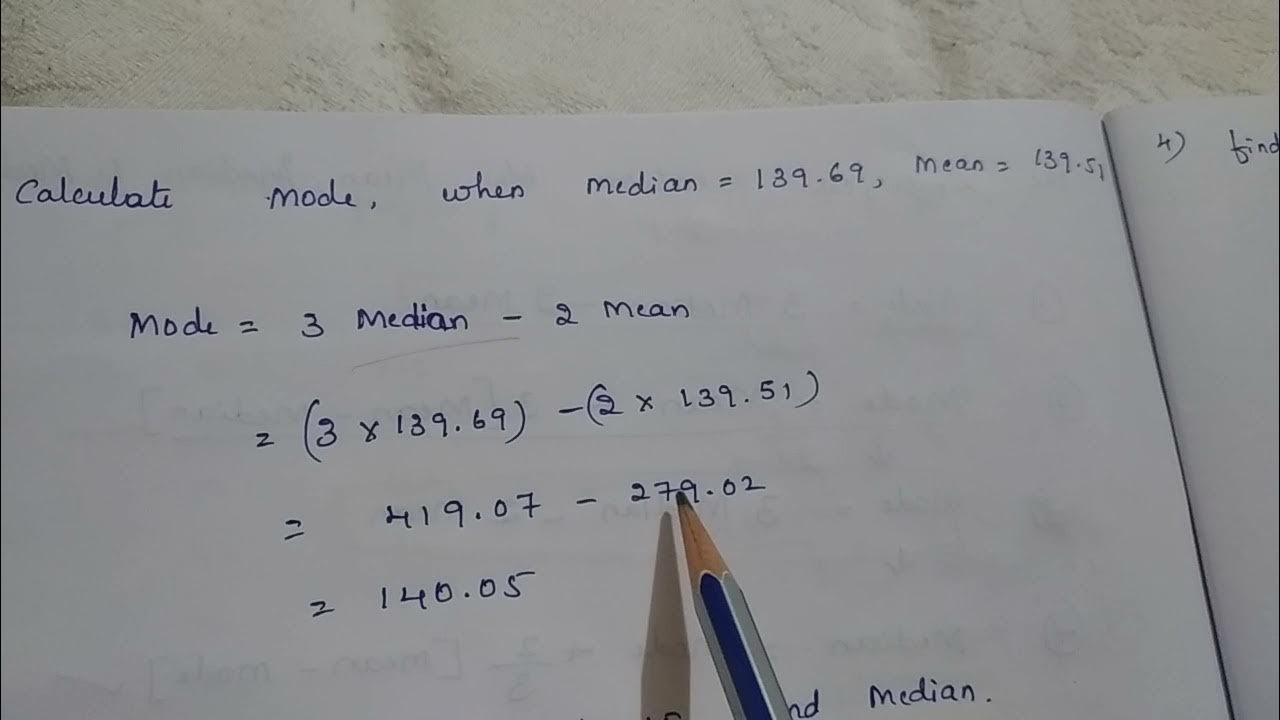 Calculate mode, when median = 139.69, mean = 139.51
Mode = 3 Median - 2 mean
= (3 x 139.69) - (2 x 139.51)
= 419.07 - 279.02
= 140.05
median.
4) find